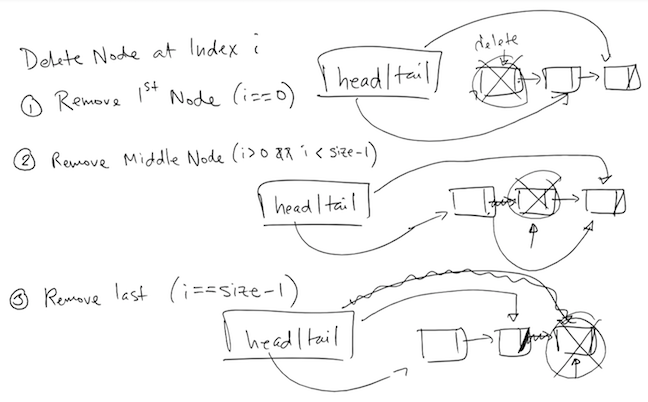 Delete Node at Index i
① Remove 1st Node (i==0)
delete
head/tail
② Remove Middle Node (i>0 && i<size-1)
head/tail
③ Remove last (i==size-1)
head/tail